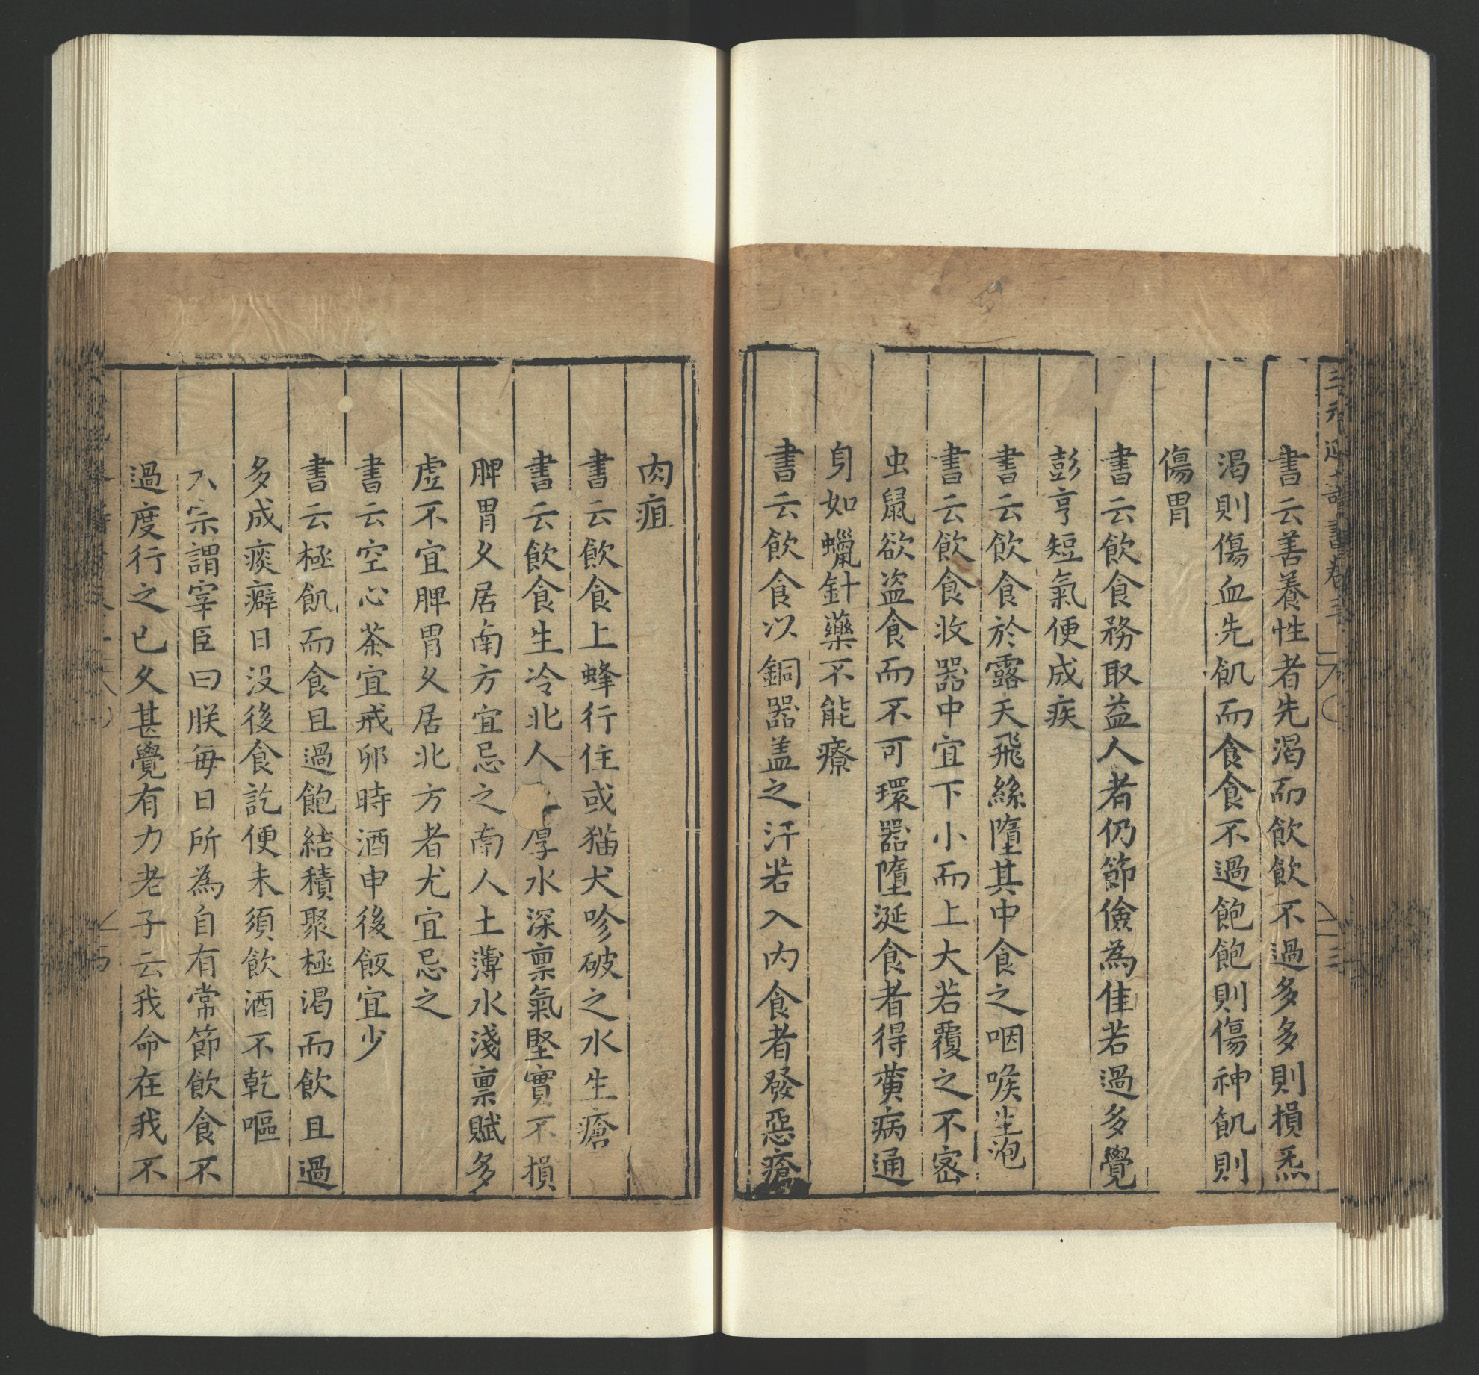 書云善養性者先渴而飲飲不過多多則損炁
渴則傷血先飢而食食不過飽飽則傷神飢則
傷胃
書云飲食務取益人者仍節儉為佳若過多覺
彭亨短氣便成疾
書云飲食於露天飛絲墮其中食之咽喉生泡
書云飲食收器中宜下小而上大若覆之不密
虫鼠欲盗食而不可環器墮涎食者得黄病通
身如蠟針藥不能療
書云飲食以銅器盖之汗若入内食者發惡瘡
肉疽
書云飲食上蜂行住或猫犬吣破之水生瘡
書云飲食生冷北人厚水深禀氣堅實不損
脾胃乆居南方宜忌之南人土薄水淺禀賦多
虚不宜脾胃乆居北方者尤宜忌之
書云空心茶宜戒卯時酒申後飯宜少
書云極飢而食且過飽結積聚極渴而飲且過
多成痰癖日没後食訖便未須飲酒不乾嘔
宗謂宰臣曰朕每日所為自有常節飲食不
過度行之已乆甚覺有力老子云我命在我不